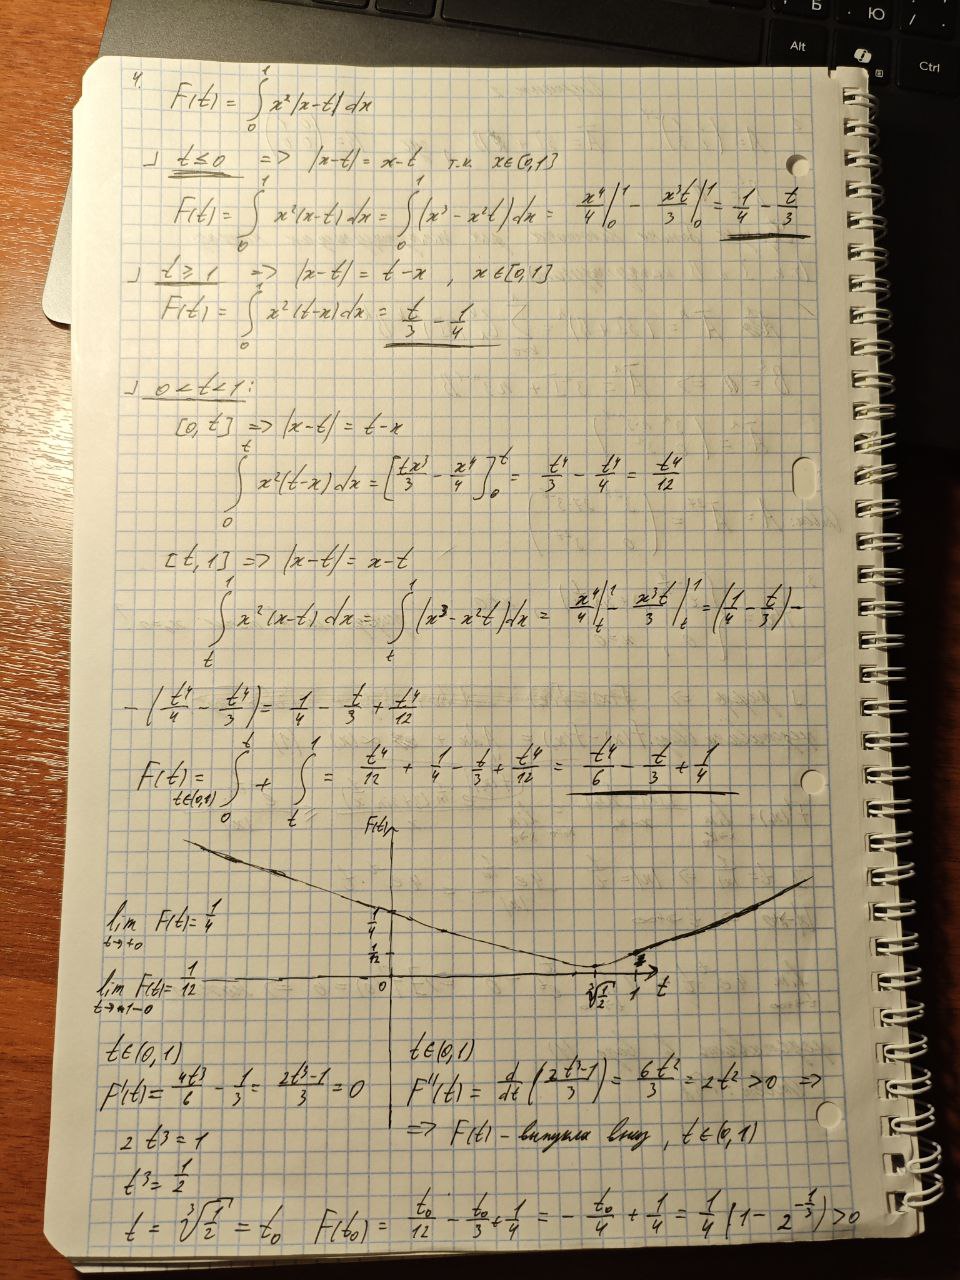 Alt
Ю
Ctrl
4.
F(t) = ∫₀¹ x²|x-t| dx
⅃ t ≤ 0 => |x-t| = x-t т.к. x∈[0,1]
F(t) = ∫₀¹ x²(x-t) dx = ∫₀¹ (x³ - x²t) dx = x⁴/4 |₀¹ - x³t/3 |₀¹ = 1/4 - t/3
⅃ t ≥ 1 => |x-t| = t-x , x∈[0,1]
F(t) = ∫₀¹ x²(t-x) dx = t/3 - 1/4
⅃ 0 < t < 1:
[0, t] => |x-t| = t-x
∫₀ᵗ x²(t-x) dx = [tx³/3 - x⁴/4]₀ᵗ = t⁴/3 - t⁴/4 = t⁴/12
[t, 1] => |x-t| = x-t
∫ₜ¹ x²(x-t) dx = ∫ₜ¹ (x³ - x²t) dx = x⁴/4 |ₜ¹ - x³t/3 |ₜ¹ = (1/4 - t/3) -
- (t⁴/4 - t⁴/3) = 1/4 - t/3 + t⁴/12
F(t) t∈(0,1) = ∫₀ᵗ + ∫ₜ¹ = t⁴/12 + 1/4 - t/3 + t⁴/12 = t⁴/6 - t/3 + 1/4
F(t)
lim t→+0 F(t) = 1/4
1/4
1/12
lim t→1-0 F(t) = 1/12
0
∛(1/2)
1
t
t∈(0,1)
F'(t) = 4t³/6 - 1/3 = (2t³-1)/3 = 0
2t³ = 1
t³ = 1/2
t = ∛(1/2) = t₀
t∈(0,1)
F''(t) = d/dt ((2t³-1)/3) = 6t²/3 = 2t² > 0 =>
=> F(t) - выпукла вниз, t∈(0,1)
F(t₀) = t₀/12 - t₀/3 + 1/4 = - t₀/4 + 1/4 = 1/4 (1 - 2^(-1/3)) > 0